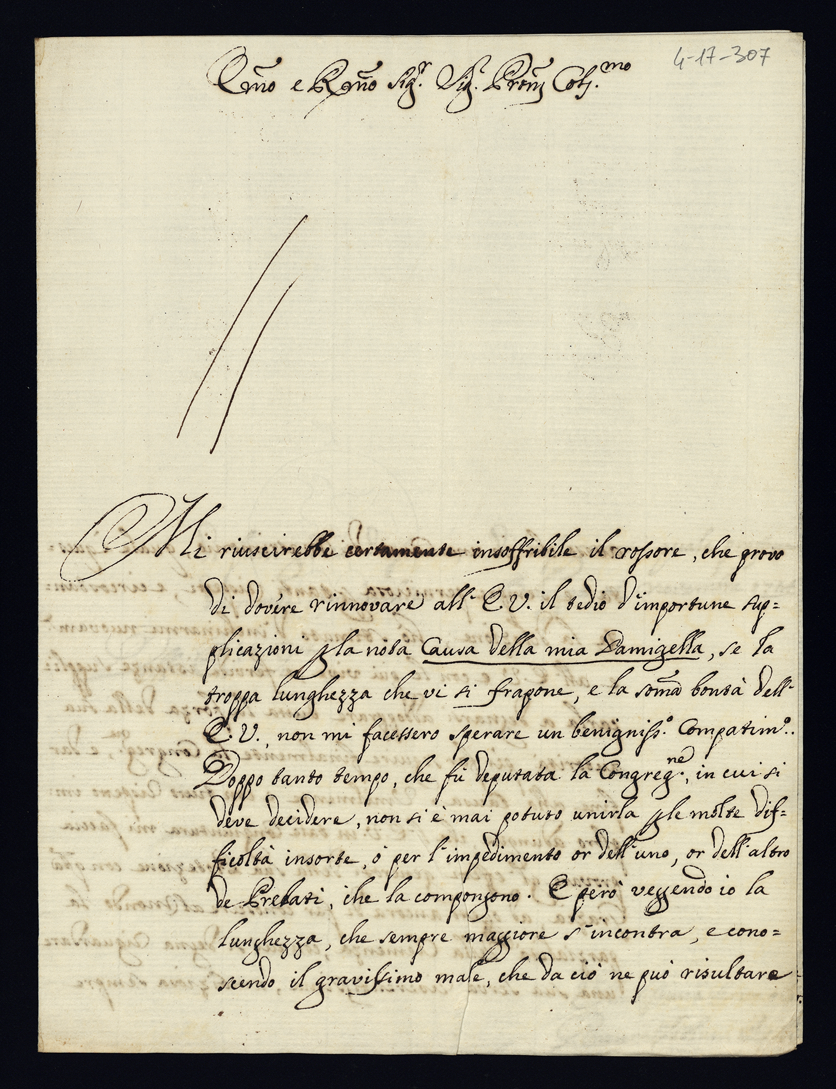 4-17-307
Em̃o e Rem̃o Sig.r Sig. Pron̄ Col.mo
Mi riuscirebbe certamente insoffribile il rossore, che provo
di dovere rinnovare all' E. V. il tedio d'importune sup=
plicazioni p la nota Causa della mia Damigella, se la
troppa lunghezza che vi si frapone, e la som̃a bontà dell'
E. V., non mi facessero sperare un benigniss.o Compatim.o.
Doppo tanto tempo, che fù deputata la Congreg.ne, in cui si
deve decidere, non si è mai potuto unirla p le molte dif=
ficoltà insorte, ò per l'impedimento or dell'uno, or dell'altro
de Prelati, che la compongono. E però veggendo io la
lunghezza, che sempre maggiore s'incontra, e cono=
scendo il gravissimo male, che da ciò ne può risultare